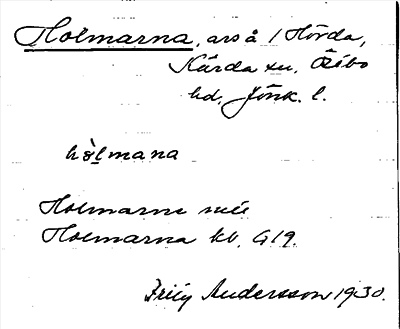 Holmarna, ars å / Hörda,
Kärda sn. Östbo
hd. Jönk. l.
hòlmana
Holmarne
Holmarna kb. G19.
Andersson 1930.